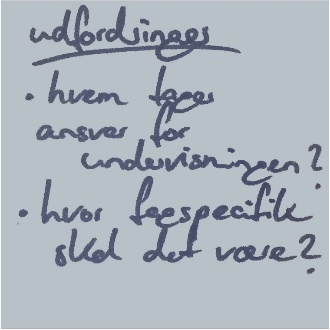 udfordringer
• hvem tager
ansvar for
undervisningen?
• hvor fagspecifik
skal det være?